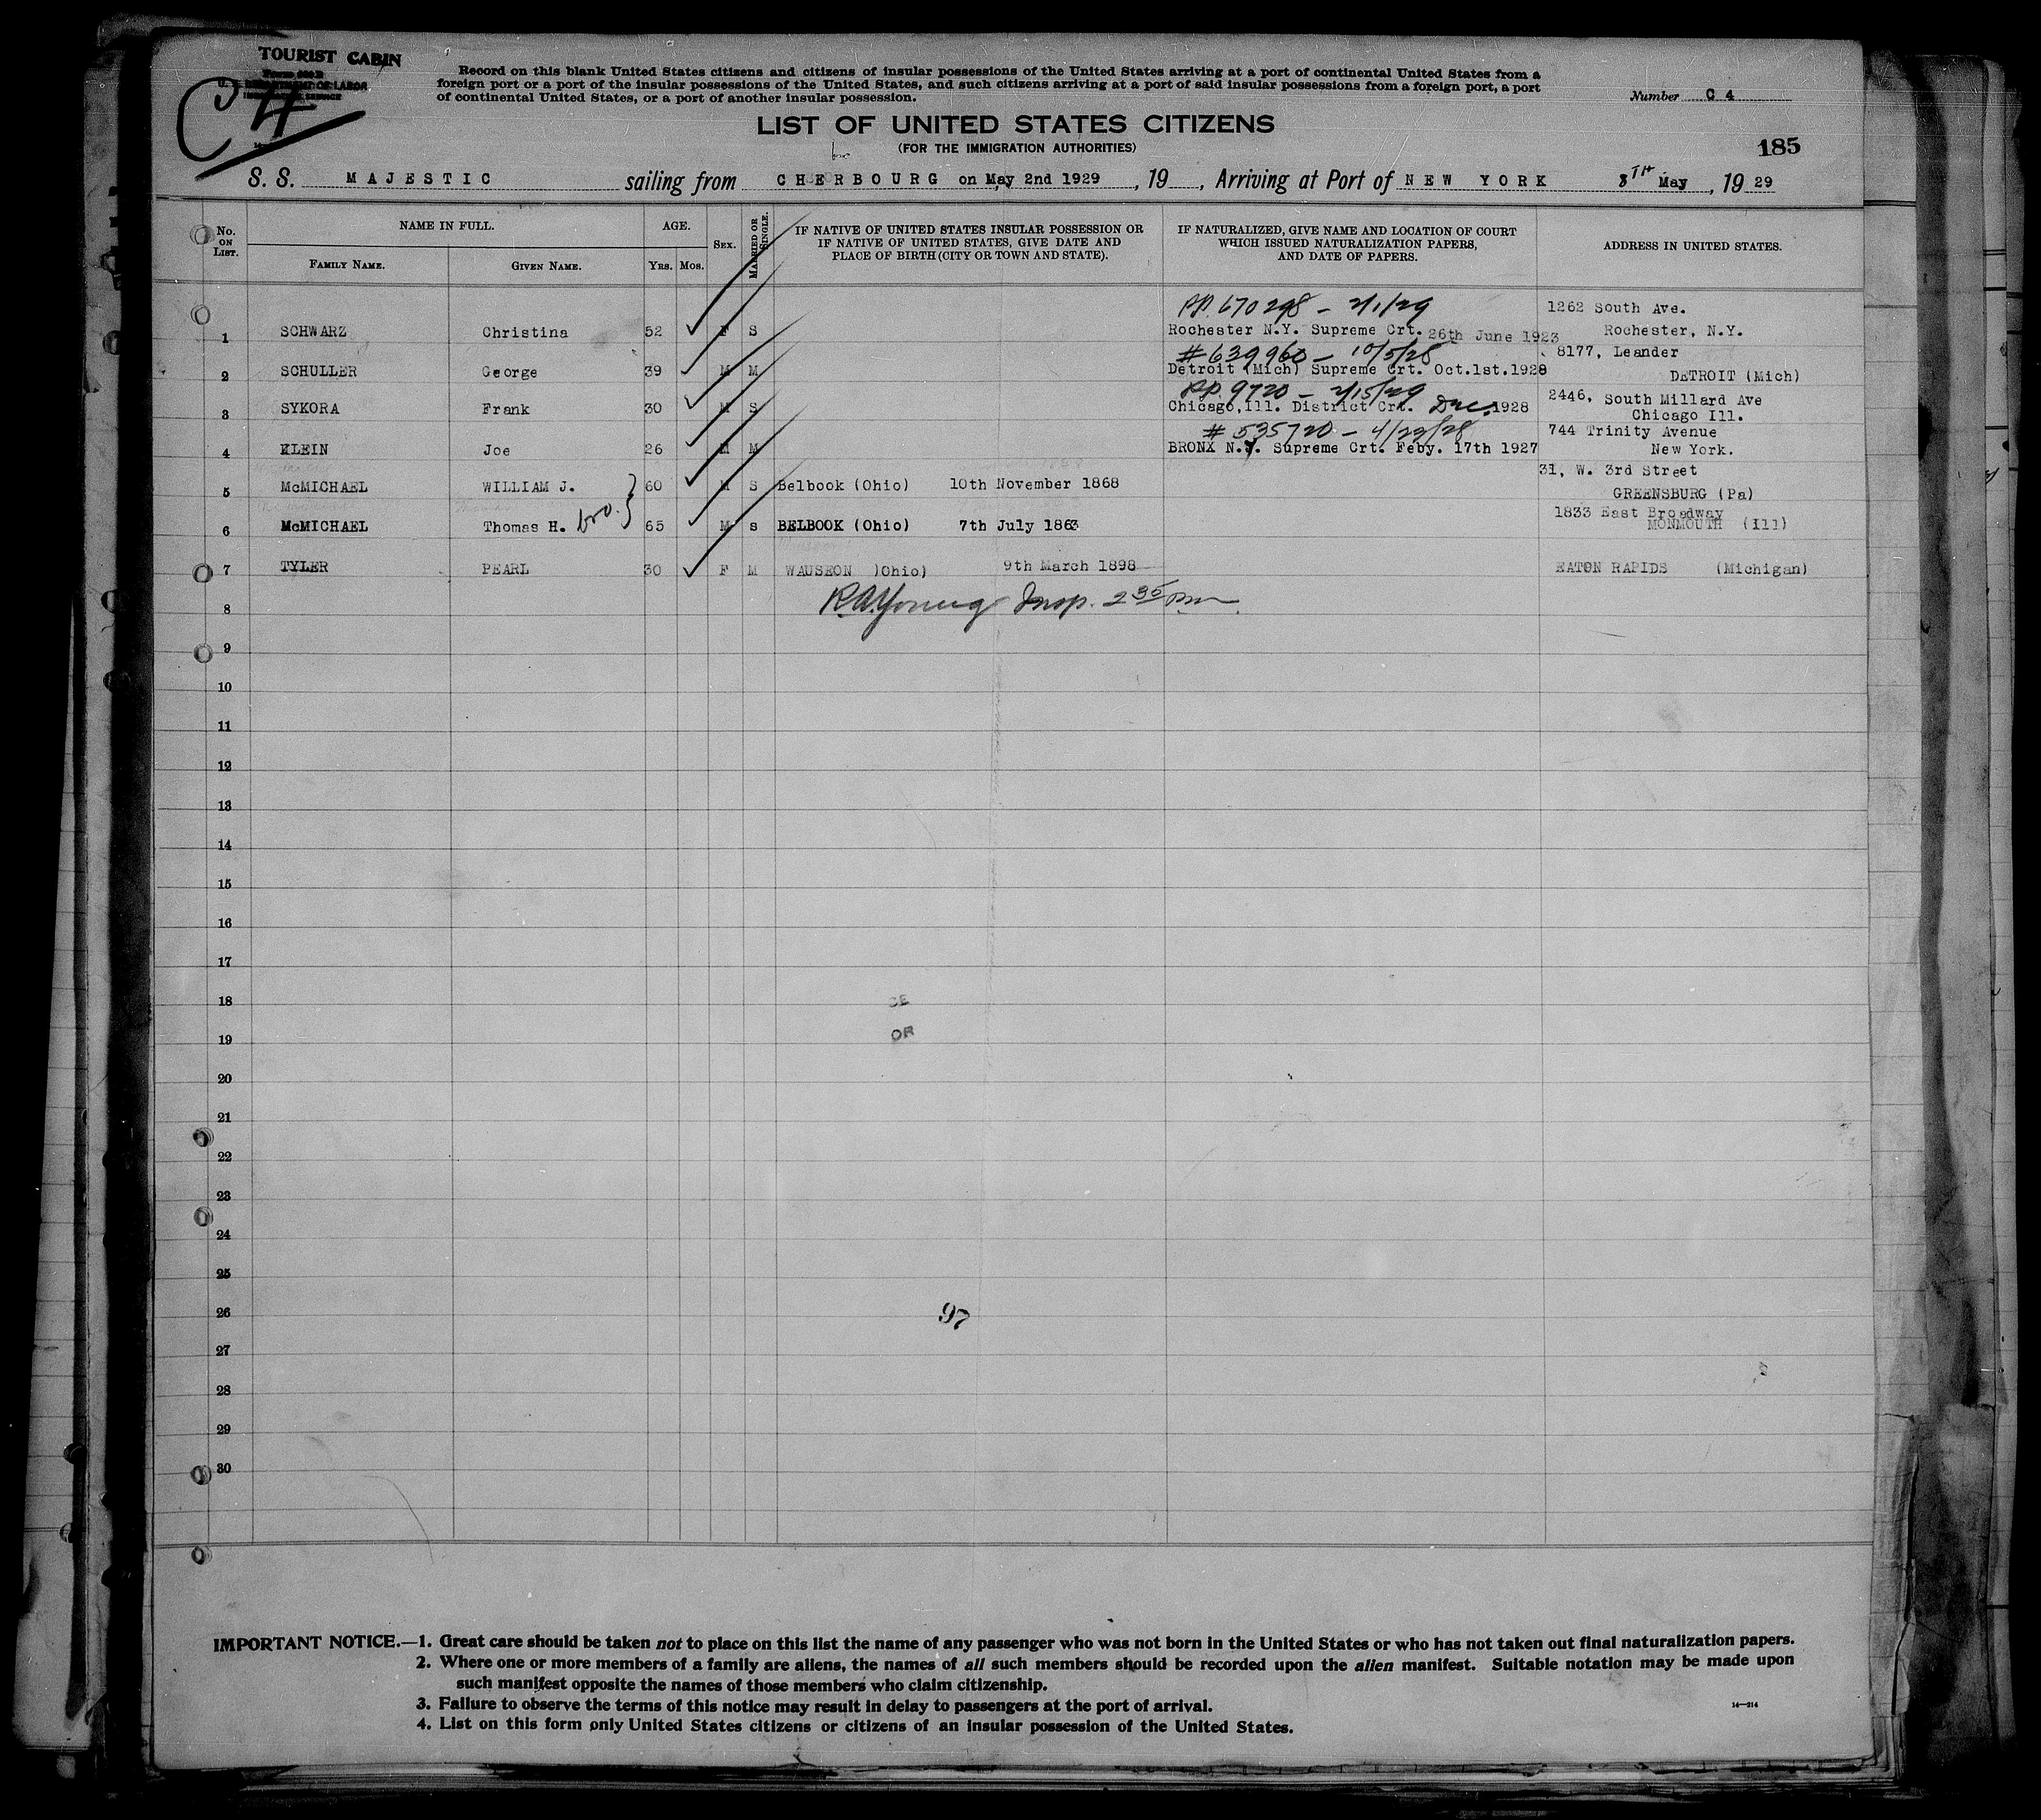 TOURIST CABIN
C 4
Record on this blank United States citizens and citizens of insular possessions of the United States arriving at a port of continental United States from a
foreign port or a port of the insular possessions of the United States, and such citizens arriving at a port of said insular possessions from a foreign port, a port
of continental United States, or a port of another insular possession.
Number C 4
LIST OF UNITED STATES CITIZENS
(FOR THE IMMIGRATION AUTHORITIES)
185
S. S. MAJESTIC sailing from CHERBOURG on May 2nd 1929, 19 , Arriving at Port of NEW YORK 8TH May, 19 29
No. ON LIST.
NAME IN FULL.
FAMILY NAME.
GIVEN NAME.
AGE.
YRS.
MOS.
SEX.
MARRIED OR SINGLE.
IF NATIVE OF UNITED STATES INSULAR POSSESSION OR
IF NATIVE OF UNITED STATES, GIVE DATE AND
PLACE OF BIRTH (CITY OR TOWN AND STATE).
IF NATURALIZED, GIVE NAME AND LOCATION OF COURT
WHICH ISSUED NATURALIZATION PAPERS,
AND DATE OF PAPERS.
ADDRESS IN UNITED STATES.
PP. 670298 – 2/1/29
1262 South Ave.
1 SCHWARZ Christina 52 F S Rochester N.Y. Supreme Crt. 26th June 1923 Rochester, N.Y.
#639960 – 10/5/28
8177, Leander
2 SCHULLER George 39 M M Detroit (Mich) Supreme Crt. Oct.1st.1928 DETROIT (Mich)
PP. 9720 – 2/15/29
2446, South Millard Ave
3 SYKORA Frank 30 M S Chicago,Ill. District Crt. Dec. 1928 Chicago Ill.
# 535720 – 4/23/28
744 Trinity Avenue
4 KLEIN Joe 26 M M BRONX N.Y. Supreme Crt. Feby. 17th 1927 New York.
31, W. 3rd Street
5 McMICHAEL WILLIAM J. 60 M S Belbook (Ohio) 10th November 1868 GREENSBURG (Pa)
bro.
1833 East Broadway
6 McMICHAEL Thomas H. 65 M s BELBOOK (Ohio) 7th July 1863 MONMOUTH (Ill)
7 TYLER PEARL 30 F M WAUSEON )Ohio) 9th March 1898 EATON RAPIDS (Michigan)
8 R.A.Young Insp. 2 35 pm
9
10
11
12
13
14
15
16
17
18
19 OR
20
21
22
23
24
25
26 97
27
28
29
30
IMPORTANT NOTICE.—1. Great care should be taken not to place on this list the name of any passenger who was not born in the United States or who has not taken out final naturalization papers.
2. Where one or more members of a family are aliens, the names of all such members should be recorded upon the alien manifest. Suitable notation may be made upon
such manifest opposite the names of those members who claim citizenship.
3. Failure to observe the terms of this notice may result in delay to passengers at the port of arrival.
14—214
4. List on this form only United States citizens or citizens of an insular possession of the United States.